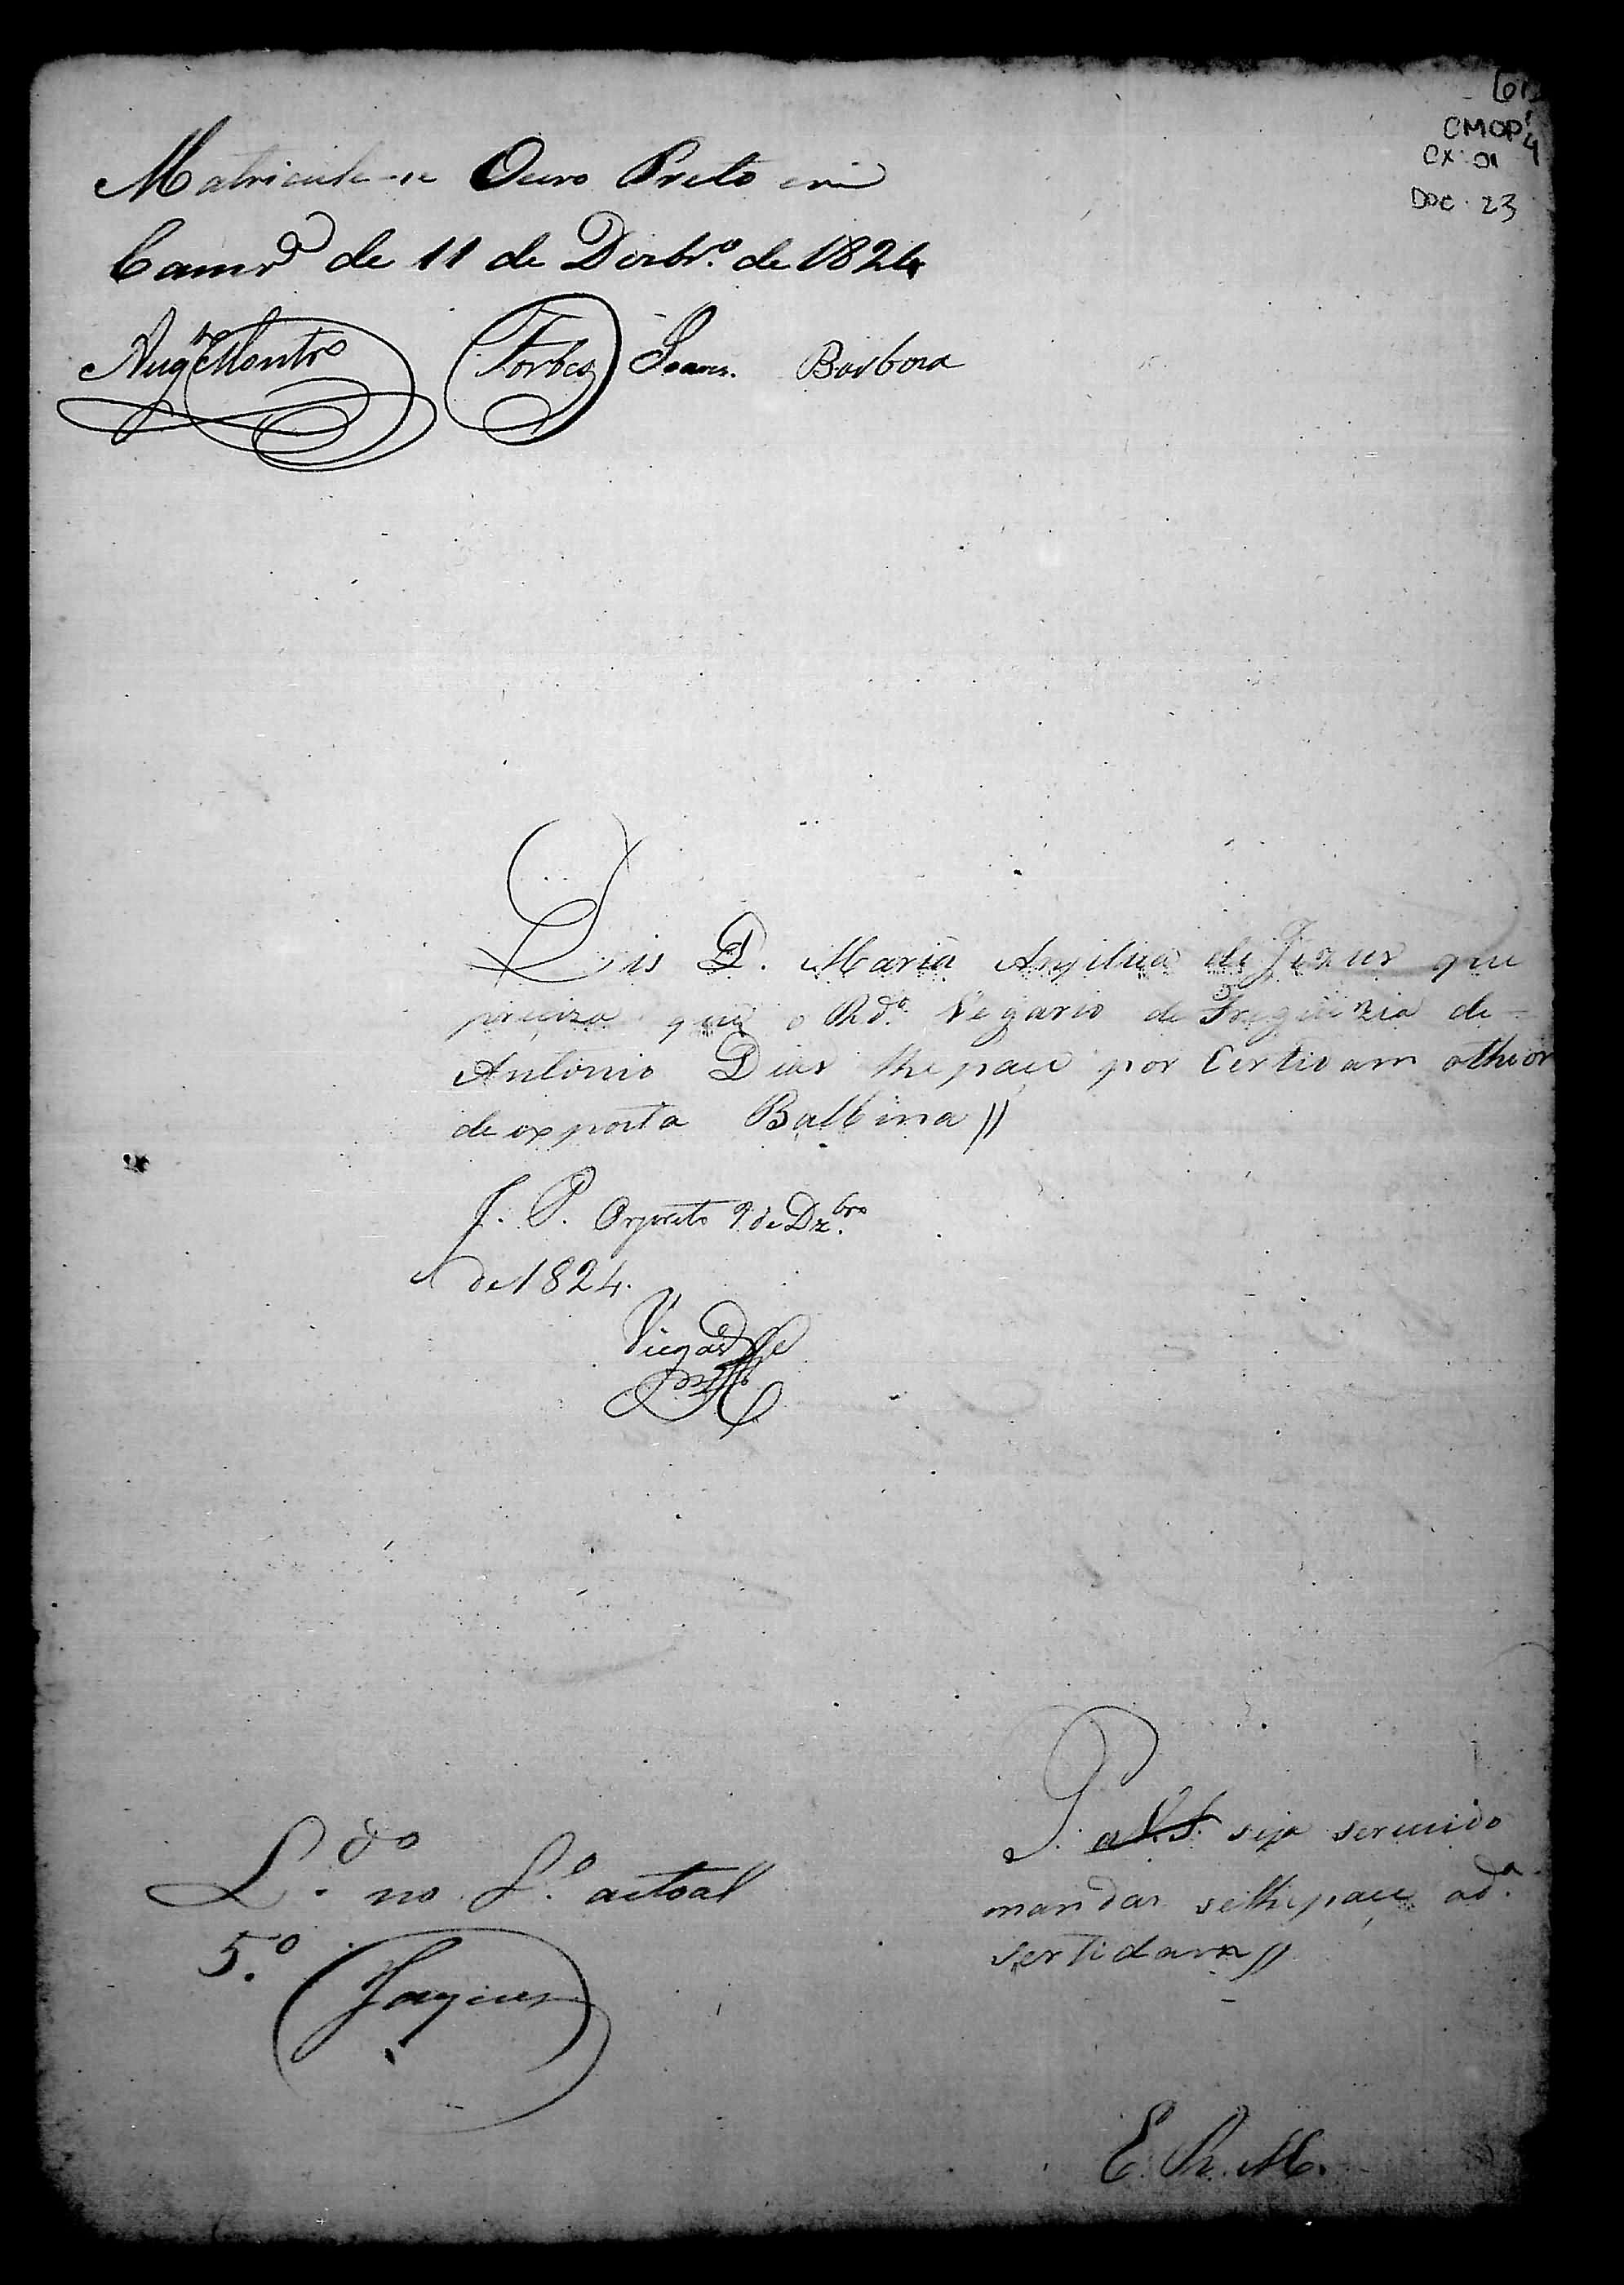 CMOP
CX. 01
DOC. 23
Matricule-se Ouro Preto em
Camrª de 11 de Dezbrº. de 1824
Forbes Soares. Barbosa
Dis D. Maria Angilica de Jezus que
preciza que o Rdº. Vegario de Freguezia de
Antonio Dias lhe pace por Certidam otheor
de exposta Balbina //
J. P. Orpreto 9 de Dzbro.
de 1824.
Viegas
P. a V.S. seja servido
mandar selhe pace adª.
sertidam //
Ldº. no Lº. actoal
5.º
E. R. M.